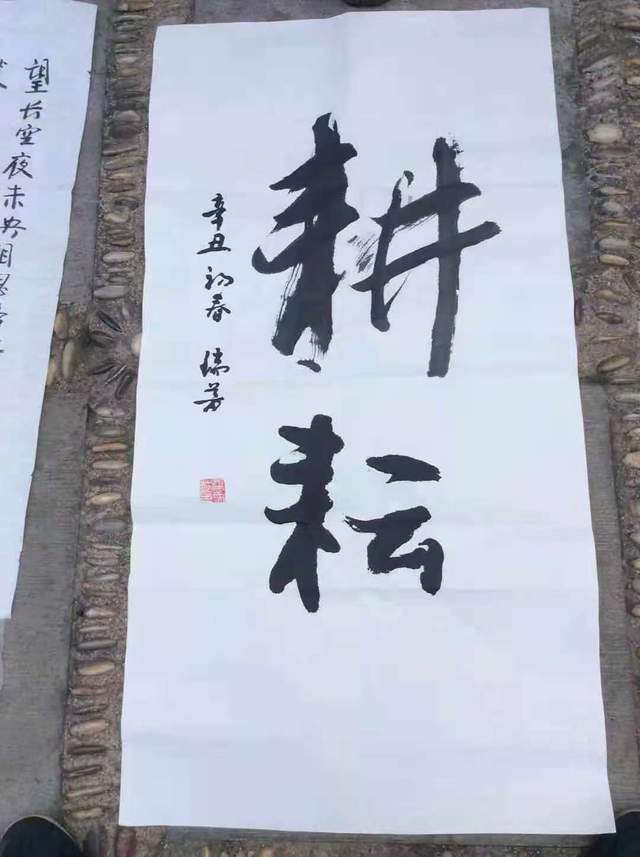 耕耘
辛丑初春 瑞芳
望长空夜未央相思